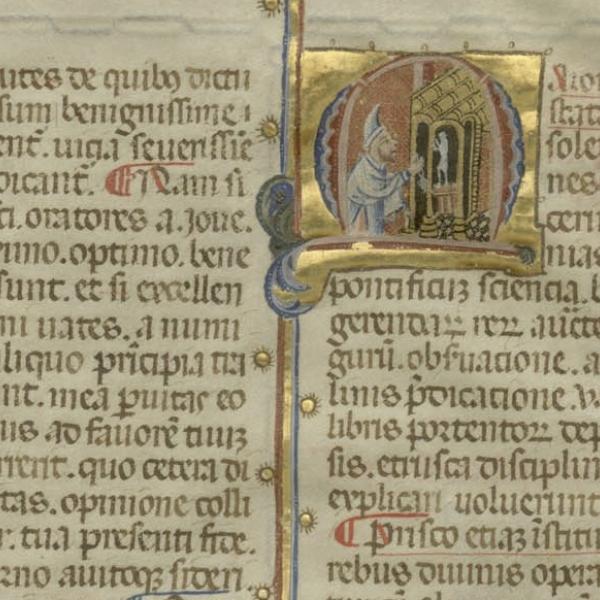 uates de quibꝫ dictū
sum benignissime.
ent. uicia seuerissīe
dicant. Nam si
ci. oratores a. Joue.
imo. optimo. bene
sunt. et si excellen
mi uates. a numi
liquo prīcipia tra
nt. mea ꝑuitas eo
us ad fauorē tuuꝫ
rrent. quo cetera di
tas. opinione colli
r. tua presenti fide.
rno auitoqꝫ sideri
stat
sole
nes
cerim
nias
pontificiꝫ sciencia. b
gerendaꝝ reꝝ aucto
guriꝫ. obẜuatione. a
libris portentoꝝ dep
sis. etrusca disciplin
explicari uoluerunt
Prisco etiaꝫ īstitu
rebus diuinis opera